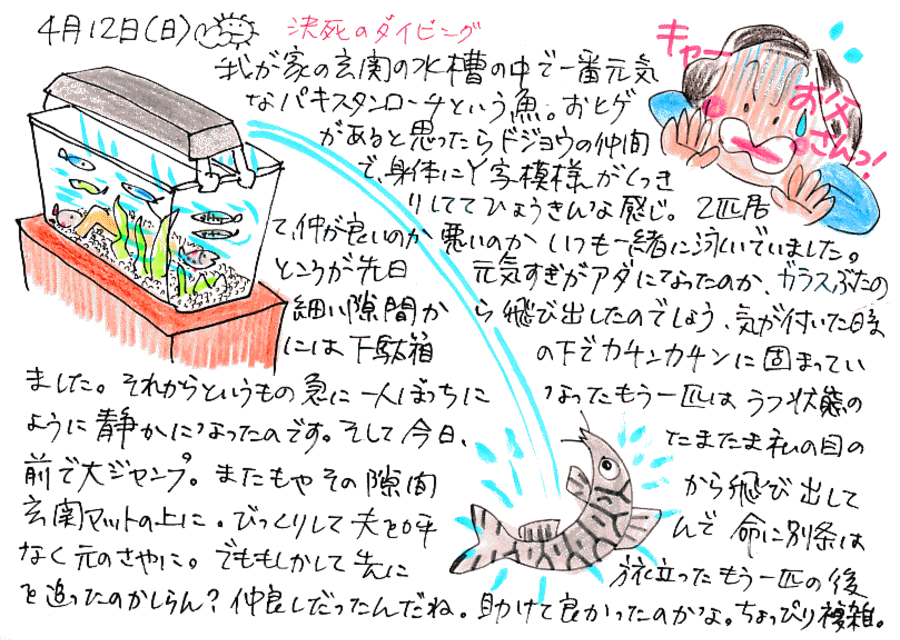 4月12日(日)
決死のダイビング
キャー
お父さんっ!
我が家の玄関の水槽の中で一番元気
なパキスタンローチという魚。おヒゲ
があると思ったらドジョウの仲間
で、身体にY字模様がくっき
りしててひょうきんな感じ。2匹居
て、仲が良いのか悪いのかいつも一緒に泳いでいました。
ところが先日 元気すぎがアダにてなったのか、ガラスぶたの
細い隙間から飛び出したのでしょう、気が付いた時
には下駄箱の下でカチンカチンに固まってい
ました。それからというもの急に一人ぼっちになったもう一匹はうつ状態の
ように静かになったのです。そして今日、たまたま私の目の
前で大ジャンプ。またもやその隙間から飛び出して
玄関マットの上に。びっくりして夫を呼んで命に別条は
なく元のさやに。でももしかして先に旅立ったもう一匹の後
を追ったのかしらん?仲良しだったんだね。助けて良かったのかな。ちょっぴり複雑。